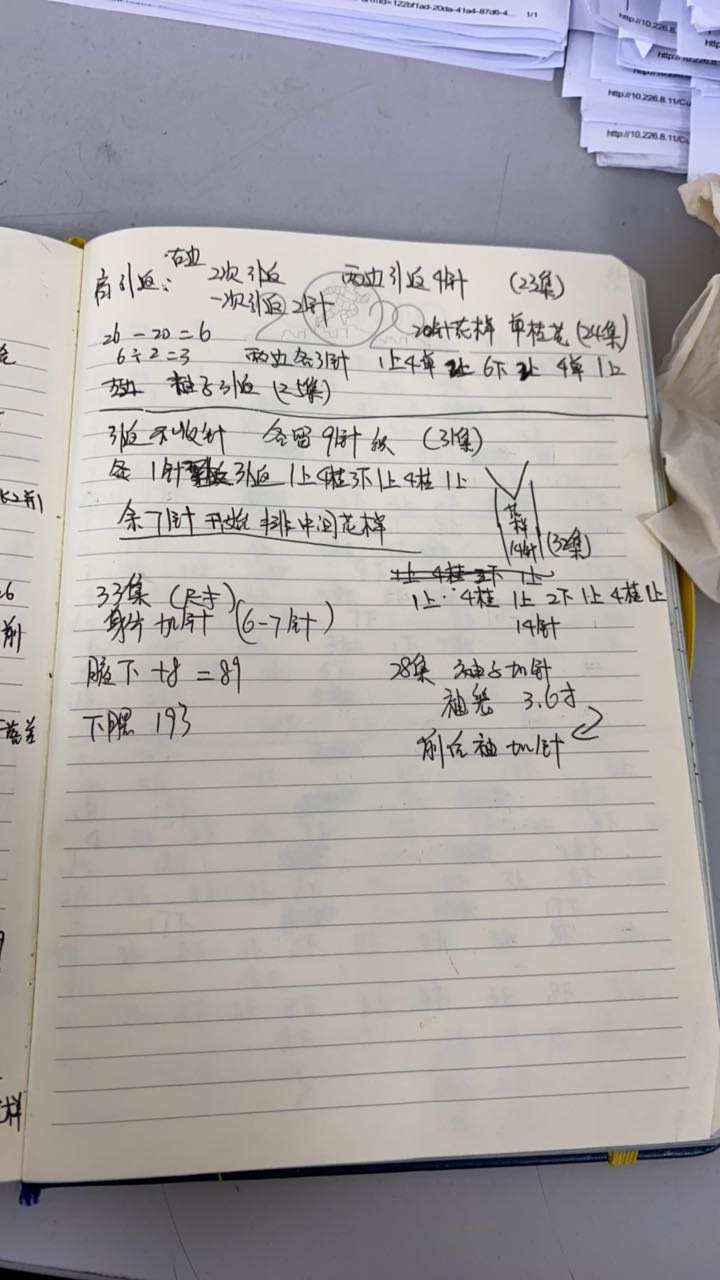 122bf1ad-20da-41a4-87d6-4... 1/1
http://10.226.8.11/Cu
http://10.226.8.11/Cu
肩引返: 右边 2次引返 两边引返4针 (23集)
一次引返2针
26-20=6 20针花样 单桂花 (24集)
6÷2=3 两边各引针 1上4单 2上 6下 2上 4单 1上
引返 (25集)
引返不收针 各留9针 (31集)
1针 引返 1上4桂3下1上4桂1上
余7针开始排中间花样
花样14针 (32集)
33集 (尺寸)
1上 4桂 1上 2下 1上 4桂 1上
身片加针 (6-7针)
14针
腋下 +8 = 89
28集 袖子加针
袖笼 3.6寸
下摆 193
前后袖加针